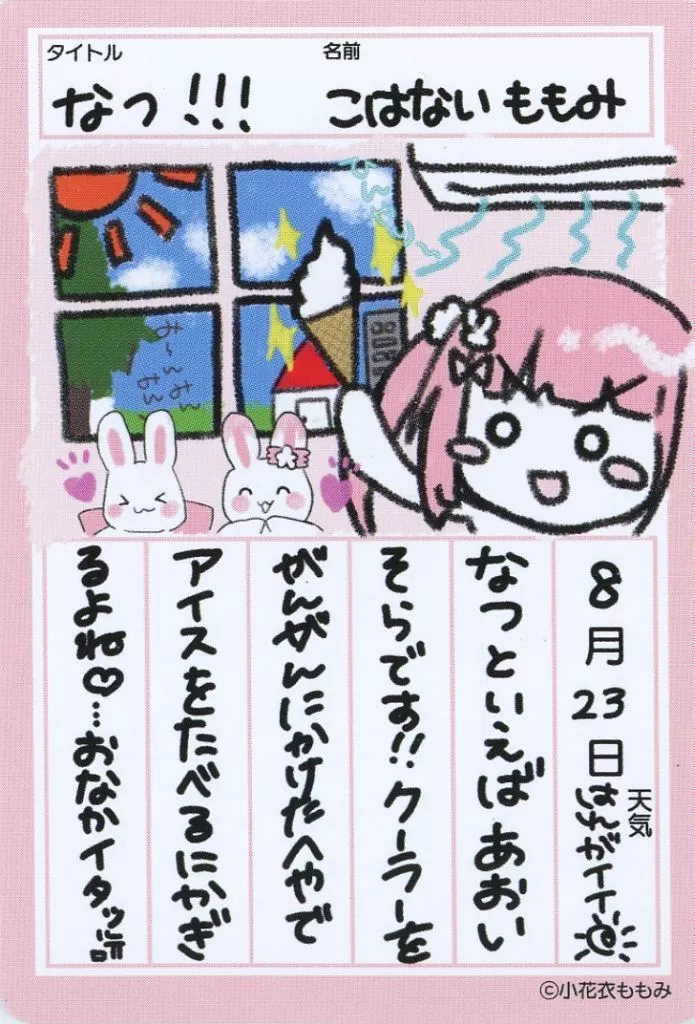 タイトル
なつ!!!
名前
こはない ももみ
ひんやり〜
み〜んみん
みん
8月23日
天気
はんがイイ
なつといえば あおい
そらです!!クーラーを
がんがんにかけたへやで
アイスをたべるにかぎ
るよね♡…おなかイタッ
©小花衣ももみ